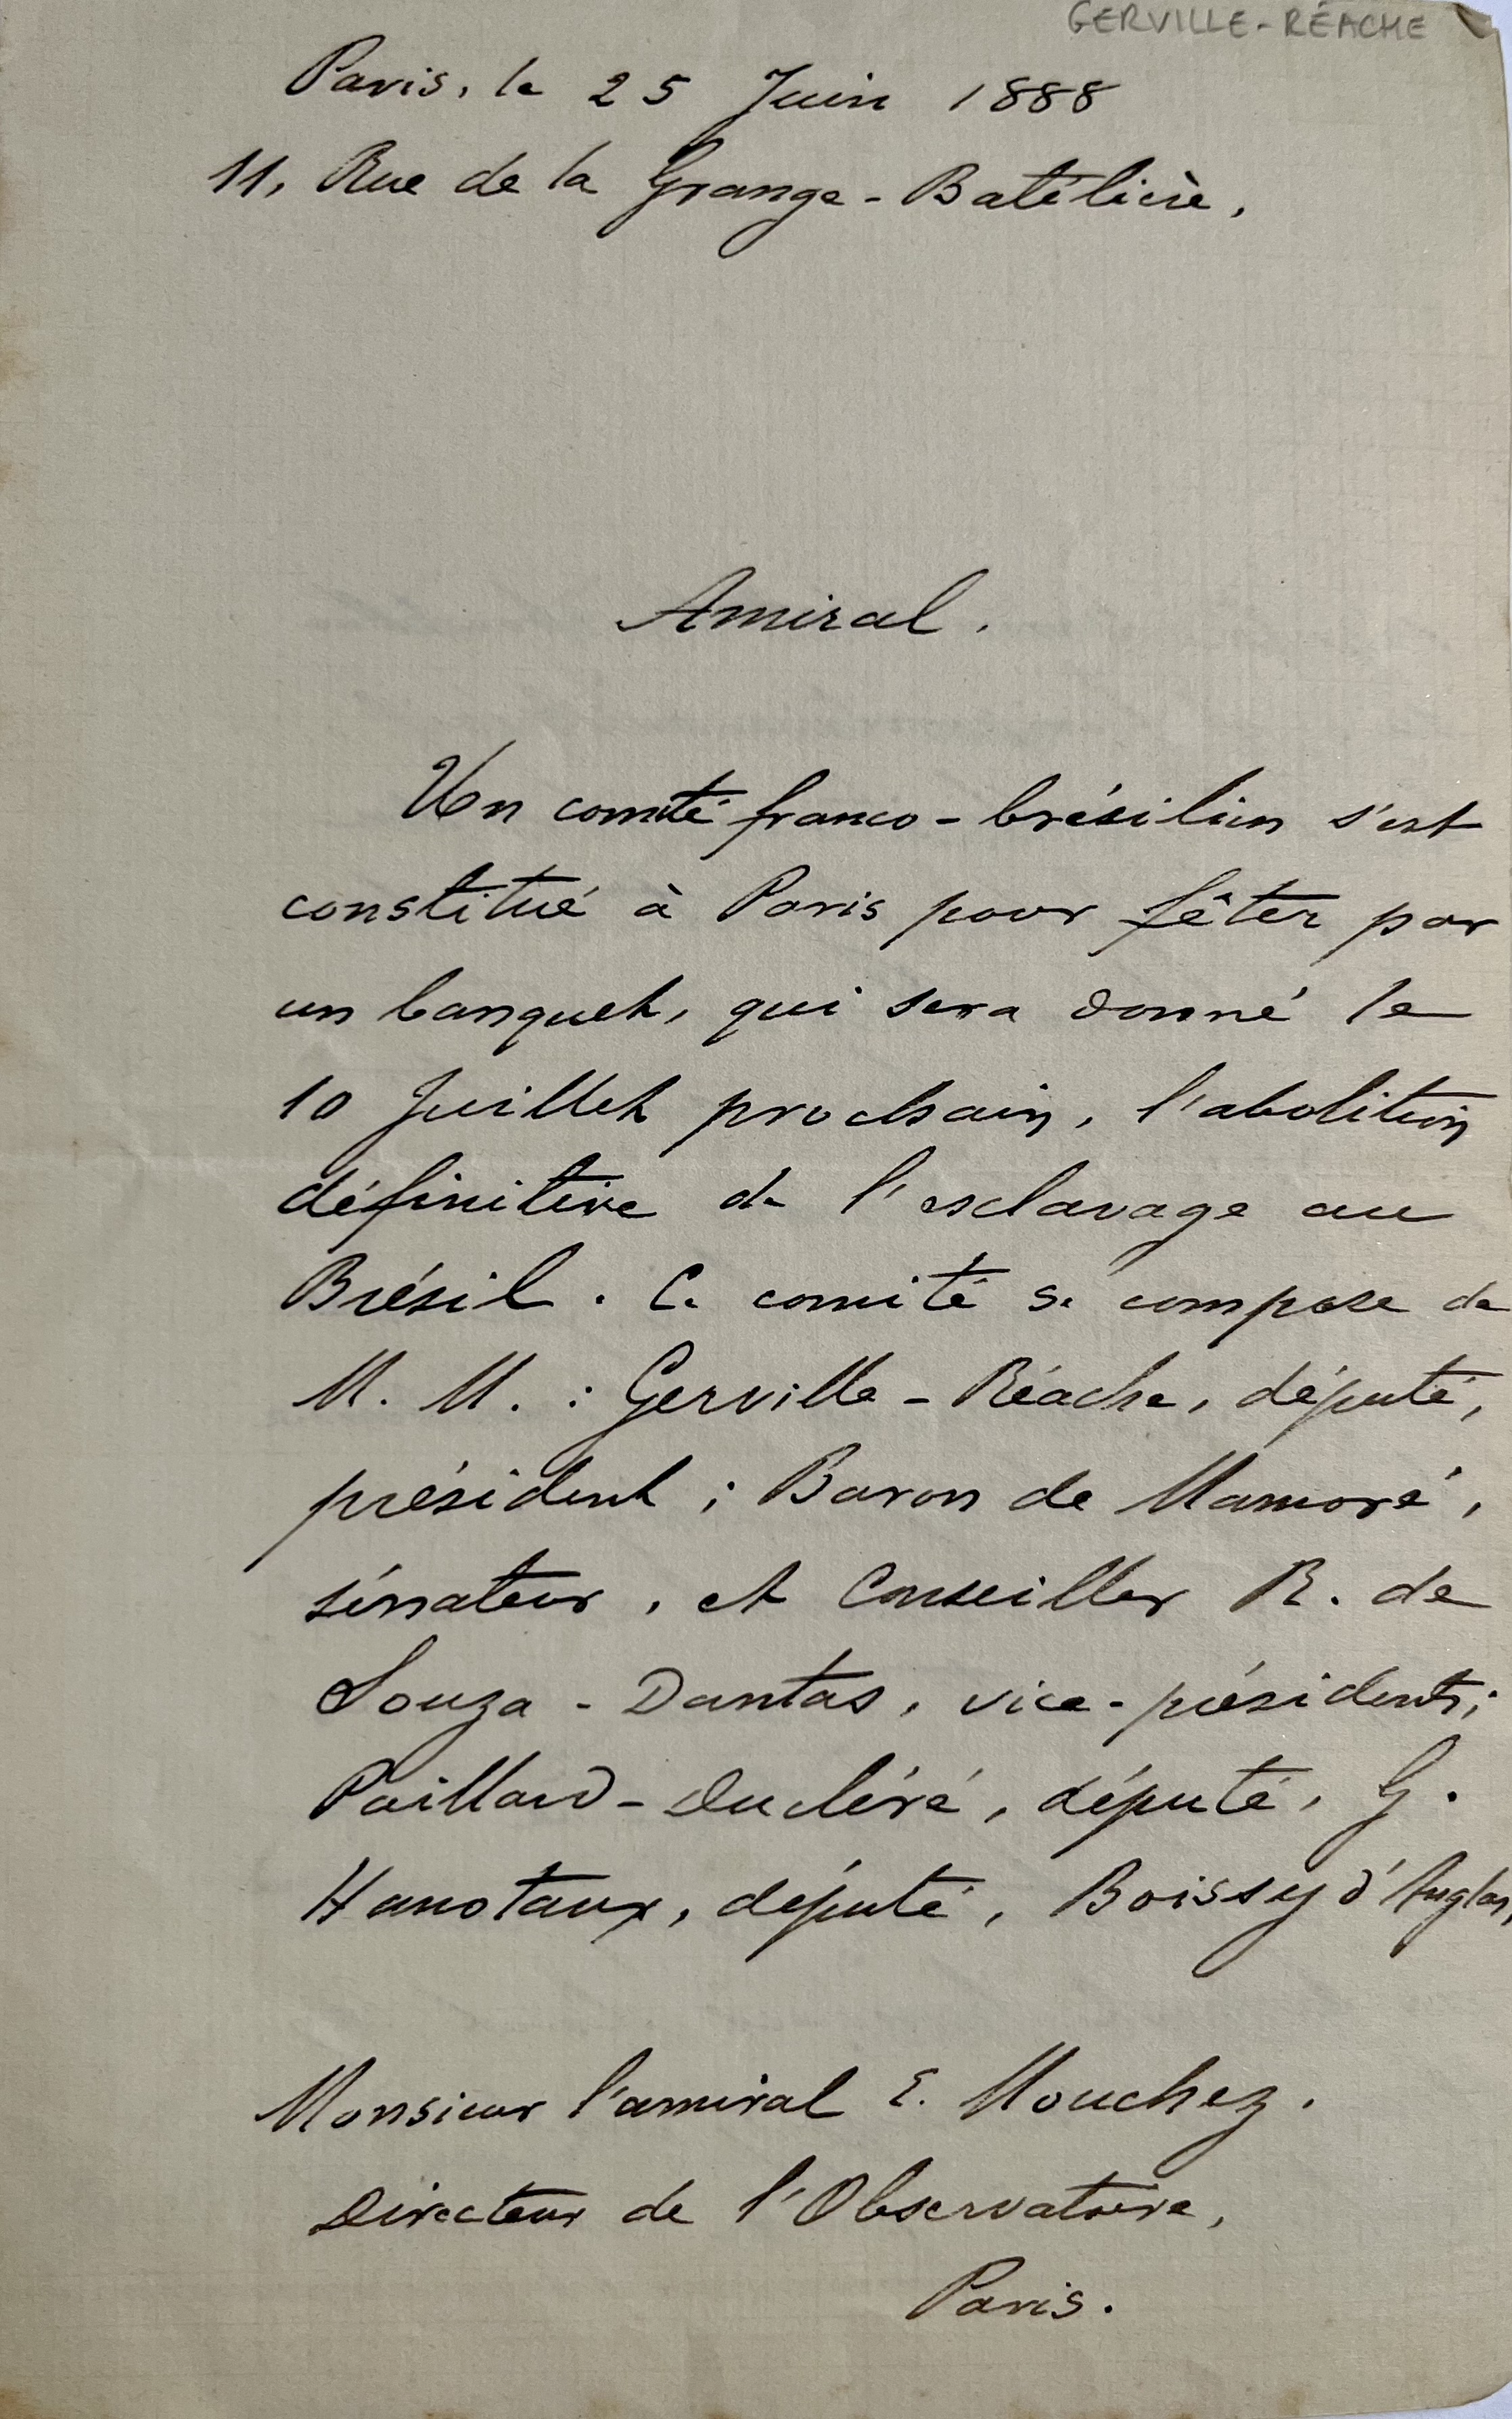 GERVILLE-RÉACHE
Paris, le 25 Juin 1888
11, Rue de la Grange-Batelière,
Amiral.
Un comité franco-brésilien s'est
constitué à Paris pour fêter par
un banquet, qui sera donné le
10 Juillet prochain, l'abolition
définitive de l'esclavage au
Brésil. Ce comité se compose de
M. M. : Gerville-Réache, député,
président ; Baron de Mamoré,
sénateur, et Conseiller R. de
Souza-Dantas, vice-présidents;
Paillard-Ducléré, député, G.
Hanotaux, député, Boissy d'Anglas,
Monsieur l'amiral E. Mouchez.
Directeur de l'Observatoire,
Paris.